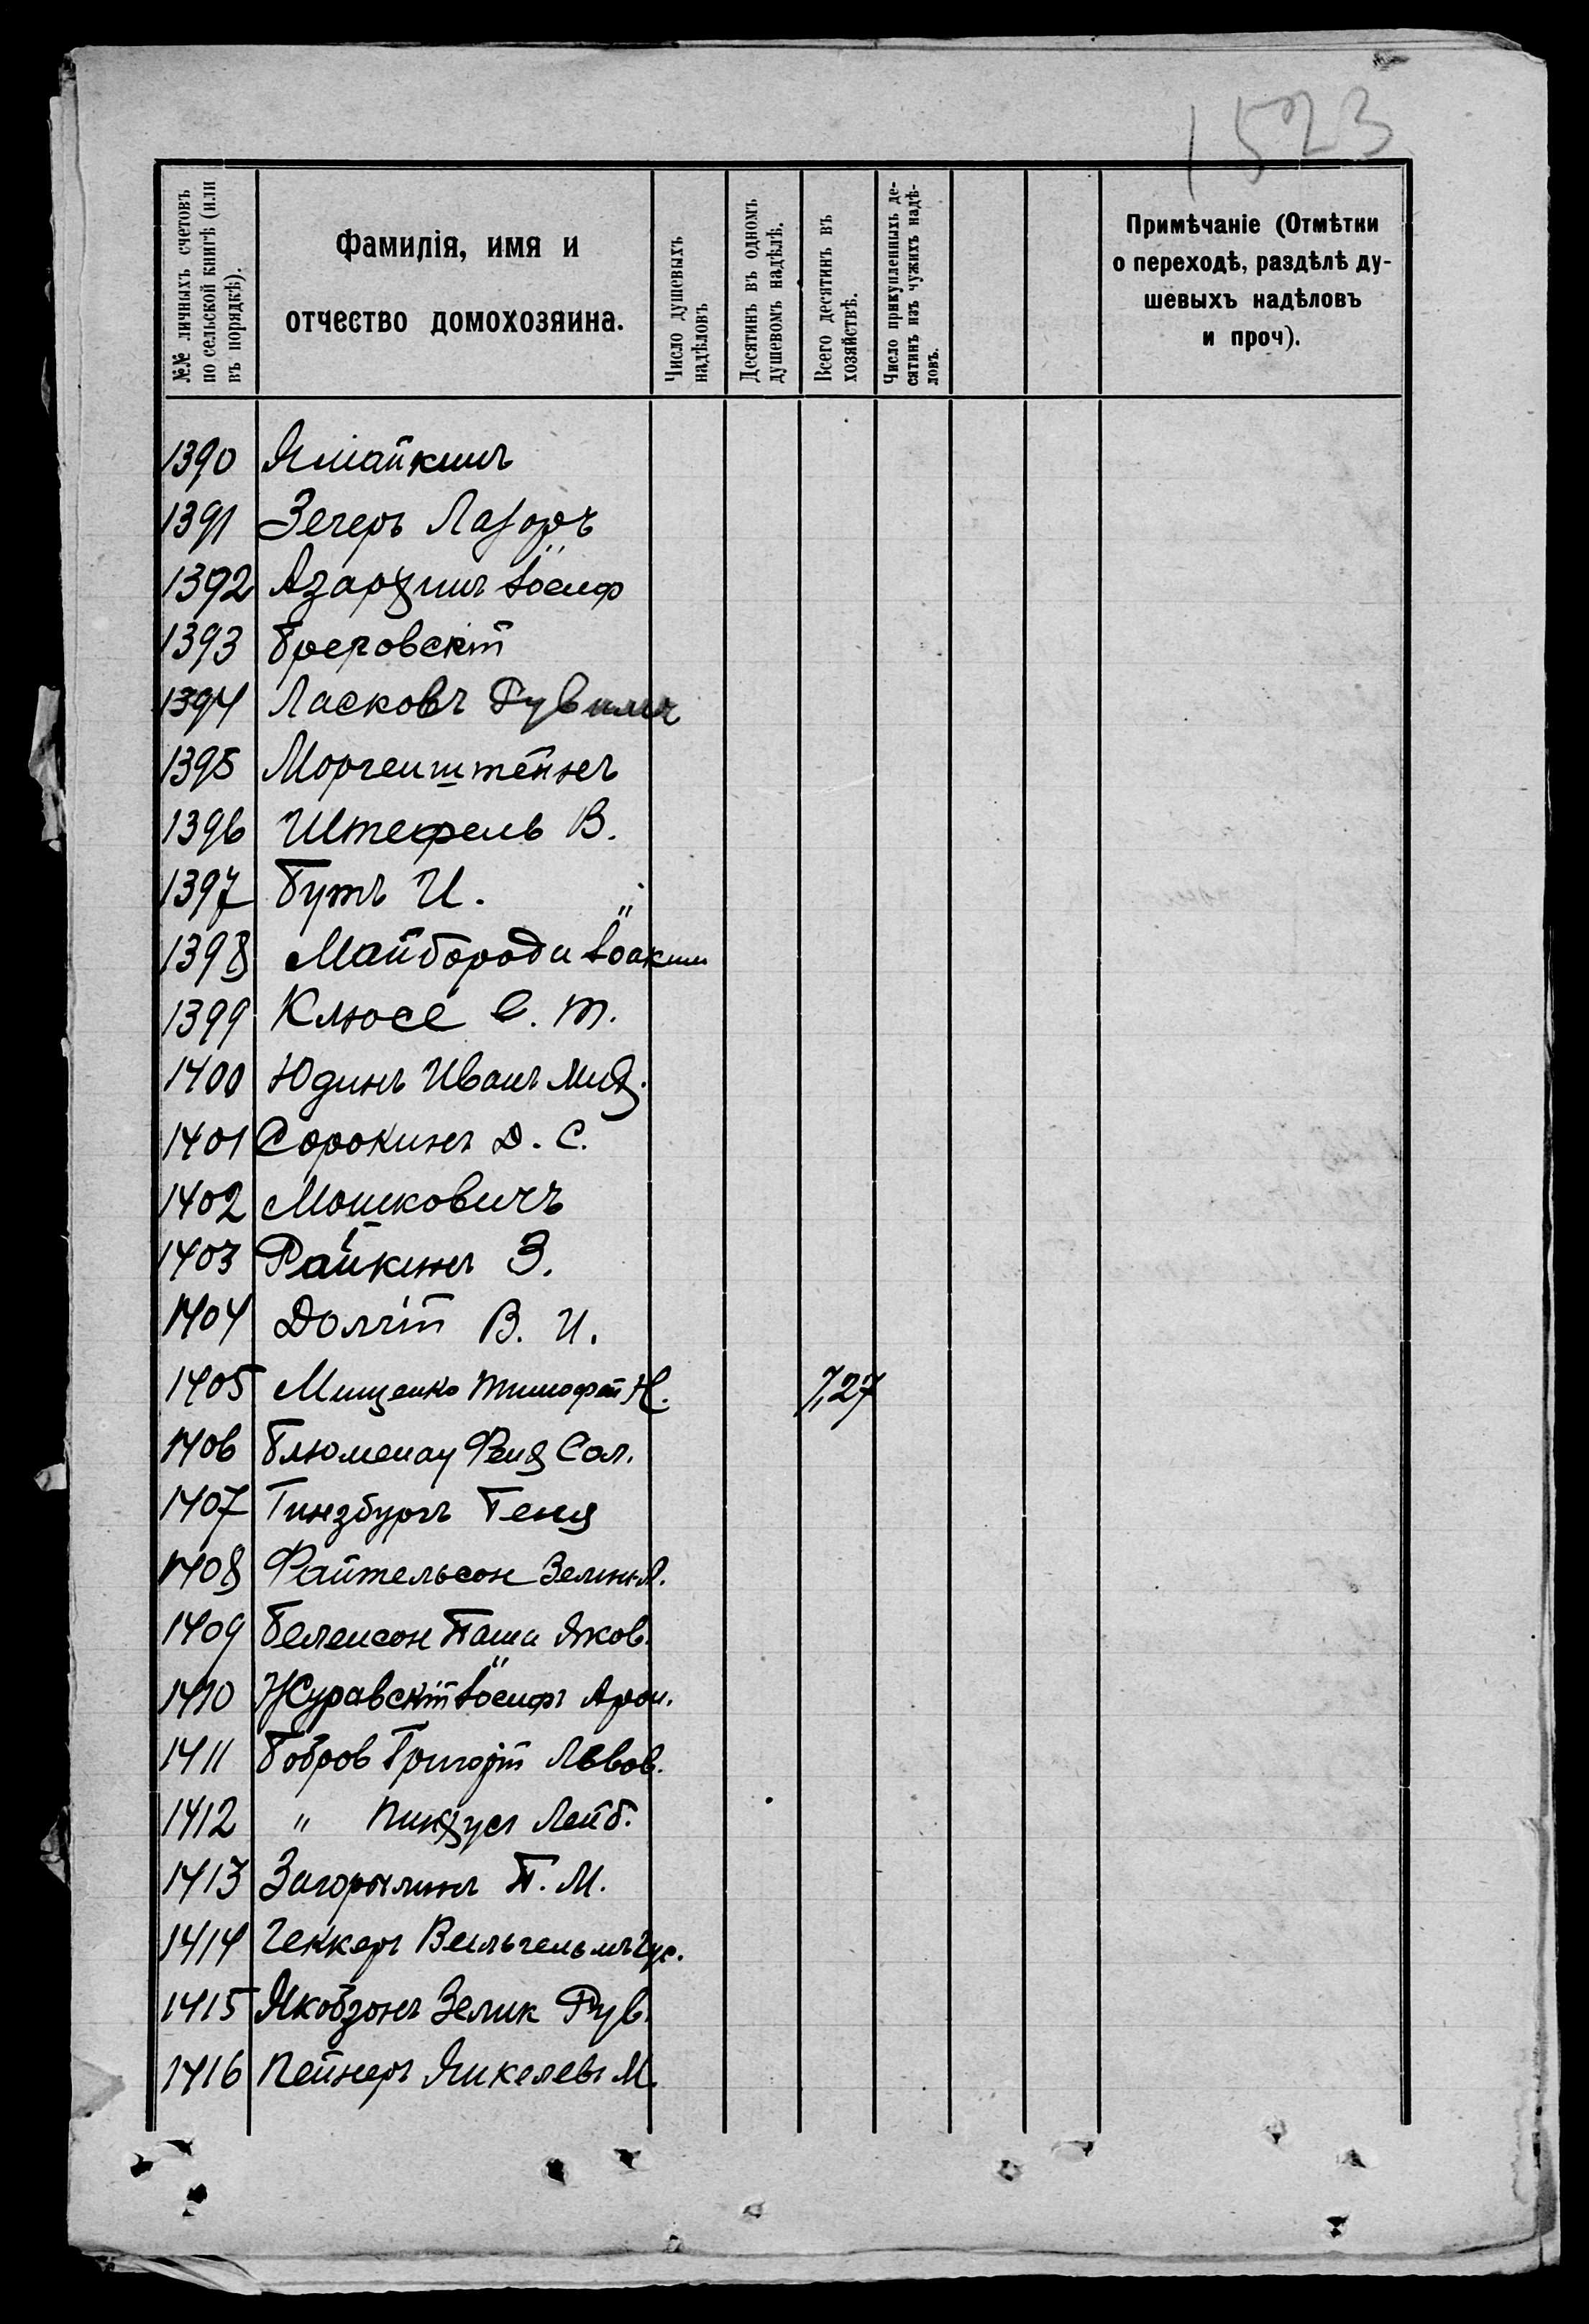 1523
№№ личныхъ счетовъ
по сельской книгѣ (или
въ порядкѣ).
Фамилія, имя и
отчество домохозяина.
Число душевыхъ
надѣловъ
Десятинъ въ одномъ
душевомъ надѣлѣ.
Всего десятинъ въ
хозяйствѣ.
Число прикупленныхъ де-
сятинъ изъ чужихъ надѣ-
ловъ.
Примѣчаніе (Отмѣтки
о переходѣ, раздѣлѣ ду-
шевыхъ надѣловъ
и проч).
1390
1391 Зегеръ Лазоръ
1392 Азархинъ Іосиф
1393
1394 Ласковъ Рувимъ
1395 Моргенштейнъ
1396 Штефель В.
1397 Бутъ И.
1398 Майборода Іоаким
1399 Клюсе Е. Т.
1400 Юдинъ Иванъ Мих.
1401 Сорокинъ Д. С.
1402 Мошковичъ
1403 Райкинъ З.
1404 Долгій В. И.
1405 Мищенко Тимофей Н. 7,27
1406 Блюменау Сол.
1407 Гинзбургъ Геня
1408 Файтельсон Зелик А.
1409 Беленсон Паша Яков.
1410 Журавскій Іосифъ Арон.
1411 Бобров Григорій Львов.
1412 " Пинхусъ Лейб.
1413 П. М.
1414 Геккеръ Вильгельмъ Гус.
1415 Якобзонъ Зелик Рув.
1416 Пейнеръ Янкелевъ М.